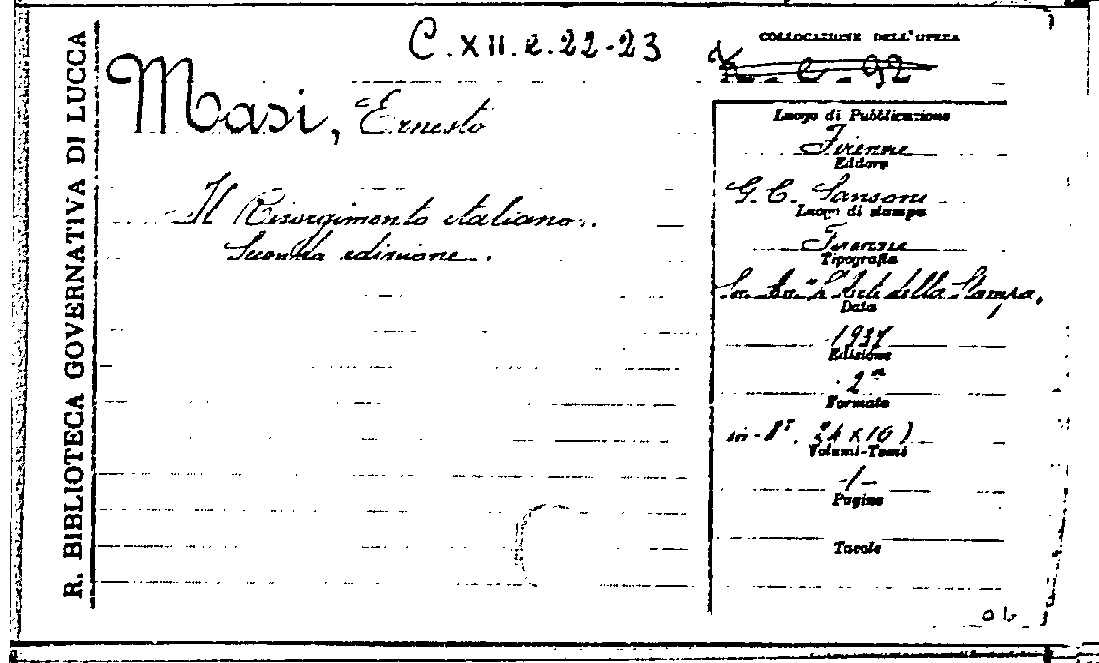 R. BIBLIOTECA GOVERNATIVA DI LUCCA
C.XII.e.22-23
Masi, Ernesto
Il Risorgimento italiano.
Seconda edizione.
COLLOCAZIONE DELL'OPERA
Luogo di Pubblicazione
Firenze
Editore
G. C. Sansoni
Luogo di stampa
Firenze
Tipografia
della Stampa,
Data
1937
Edizione
2ª
Formato
in-8°.
Volumi-Tomi
-1-
Pagine
Tavole